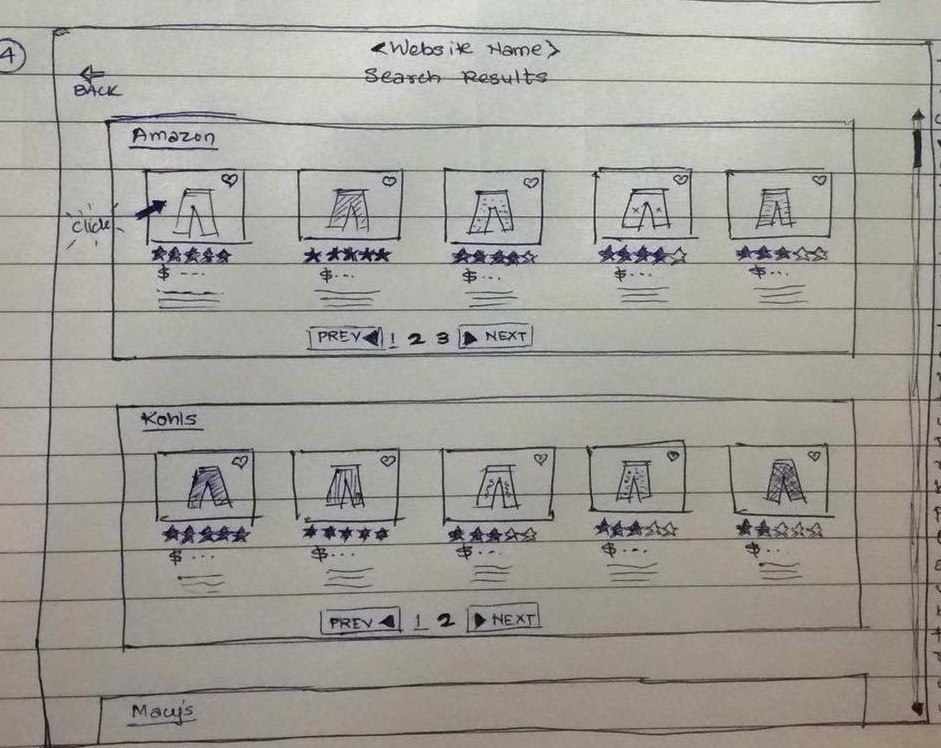 4
<Website Name>
Search Results
BACK
Amazon
Click
$ ----
$ ...
$ ...
$ ...
$ ...
PREV 1 2 3 NEXT
Kohls
$ ...
$ ...
$ ...
$ ...
$ ...
PREV 1 2 NEXT
Macy's